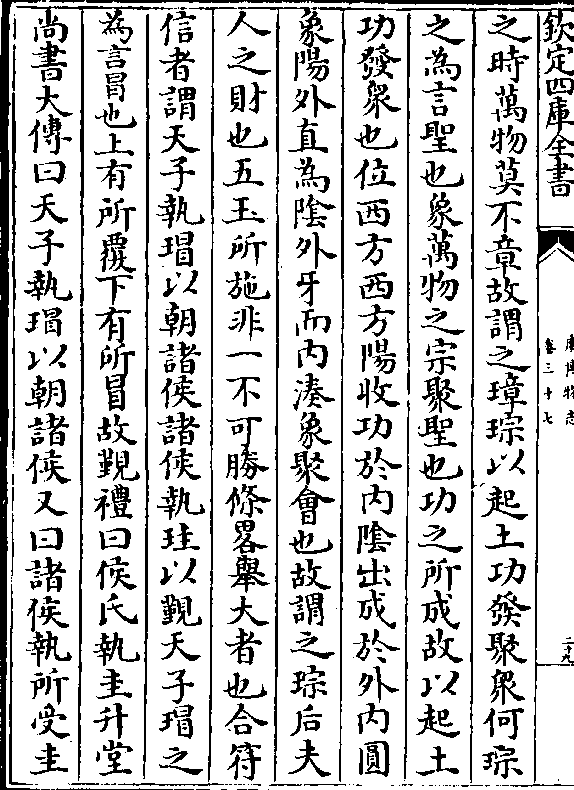 欽定四庫全書
廣博物志
卷三十七
二十九
之時萬物莫不章故謂之璋琮以起土功發聚衆何琮
之為言聖也象萬物之宗聚聖也功之所成故以起土
功發衆也位西方西方陽收功於内隂出成於外内圓
象陽外直為隂外牙而内湊象聚會也故謂之琮后夫
人之財也五玉所施非一不可勝條畧舉大者也合符
信者謂天子執瑁以朝諸侯諸侯執珪以覲天子瑁之
為言冒也上有所覆下有所冒故覲禮曰侯氏執圭升堂
尚書大傳曰天子執瑁以朝諸侯又曰諸侯執所受圭